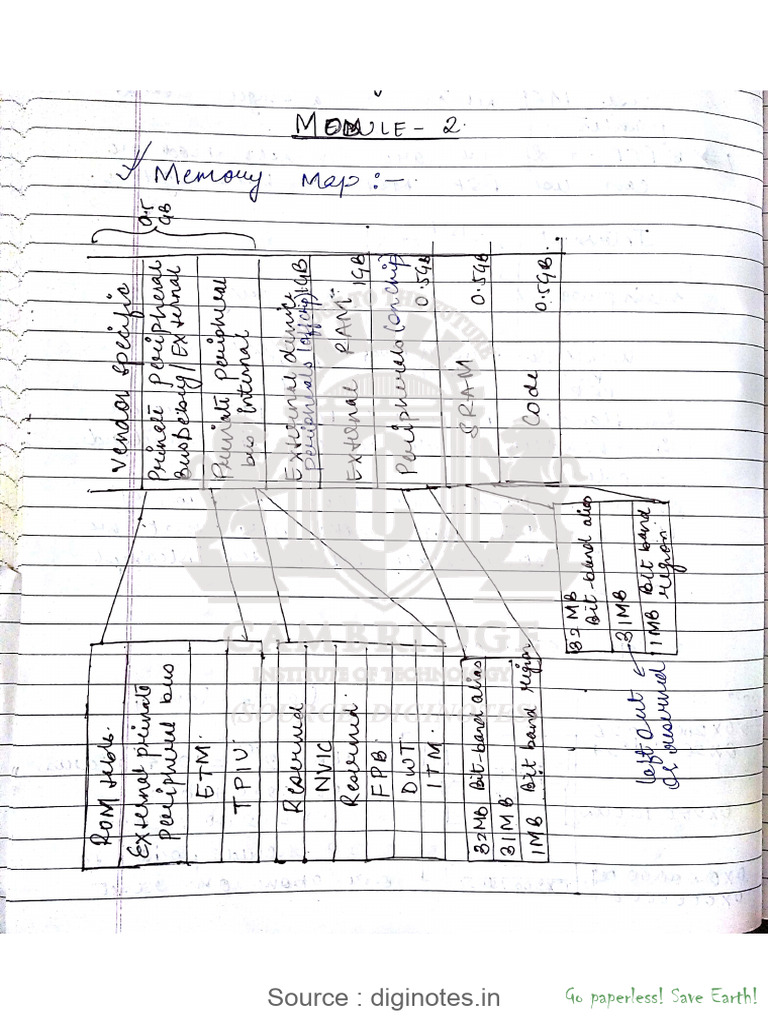 MODULE - 2
Memory Map :-
0.5
GB
Vendor Specific
Private Peripheral
Bus Debug/External
Private Peripheral
bus internal
External device
Peripherals (offchip) 1GB
External RAM 1GB
Peripherals (on chip)
0.5GB
SRAM 0.5GB
Code 0.5GB
ROM table.
External private
Peripheral bus
ETM.
TPIU.
Reserved
NVIC
Reserved.
FPB
DWT
ITM
32MB Bit-band alias
31MB
1MB Bit band region
32MB
Bit-band alias
31MB
1MB Bit band
region
left out
as reserved
TO THE FUTURE
CAMBRIDGE
INSTITUTE OF TECHNOLOGY
(SOURCE DIGINOTES)
Source : diginotes.in
Go paperless! Save Earth!